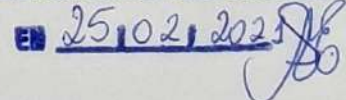 EN 25,02,2021